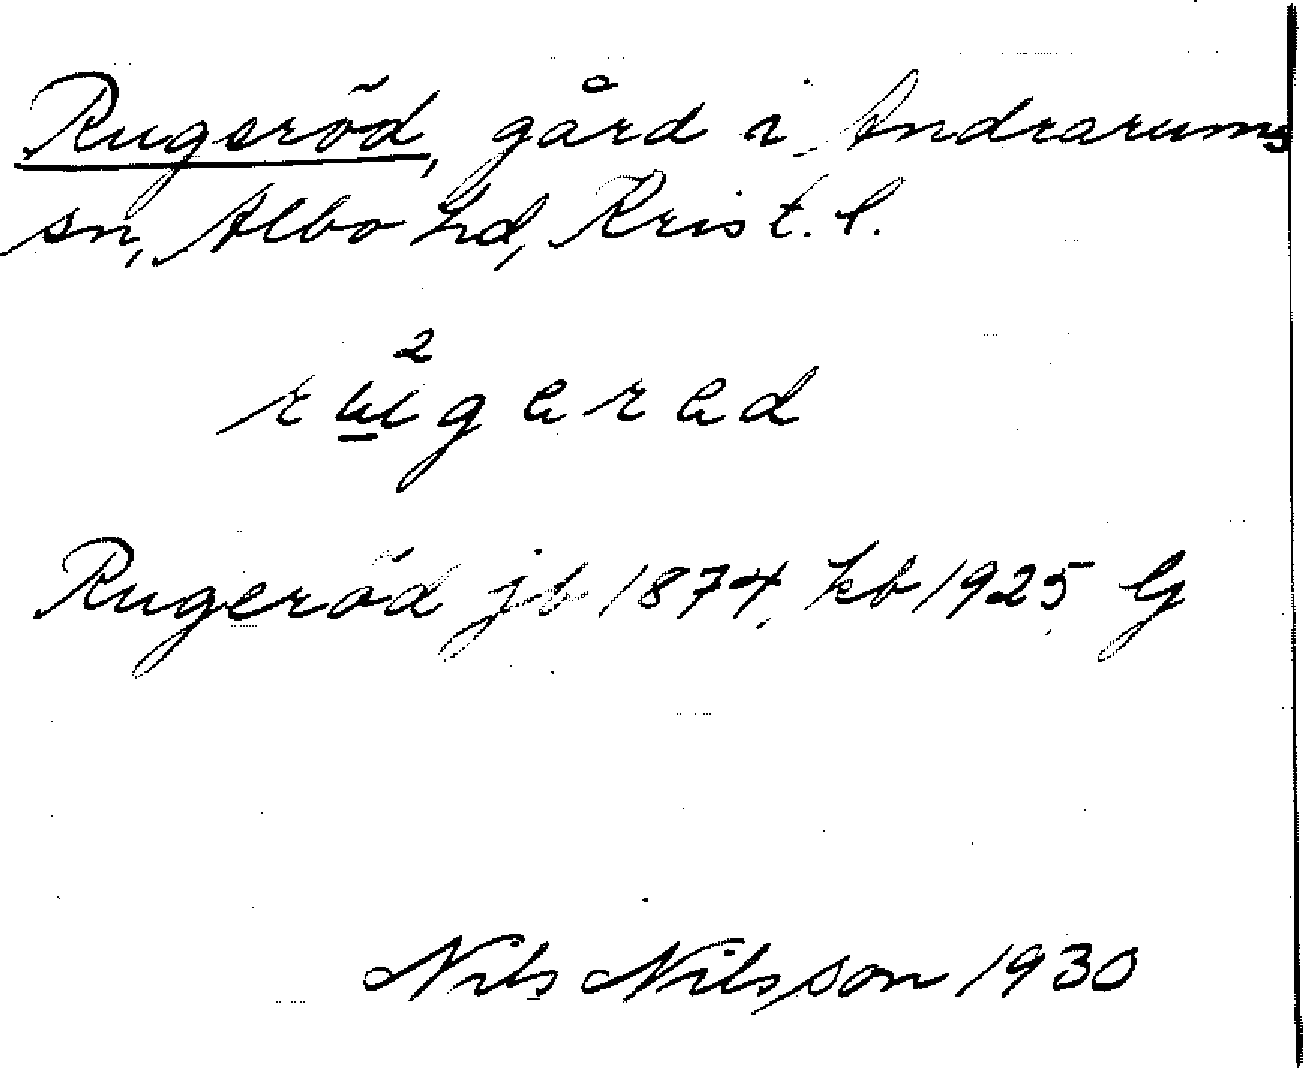 Rugeröd, gård i Andrarums
sn, Albo hd, Krist. l.
Rugeröd jb 1874, kb 1925 G
Nils Nilsson 1930